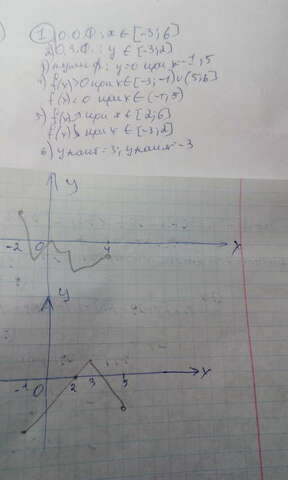 1) О.О.Ф.: x ∈ [-3; 6]
2) О.З.Ф.: y ∈ [-3; 2]
3) нули ф.: y=0 при x -1; 5
4) f(x)>0 при x ∈ [-3; -1) ∪ (5; 6]
f(x)<0 при x ∈ (-1; 5)
5) f(x)↑ при x ∈ [2; 6]
f(x)↓ при x ∈ [-3; 2]
6) y наиб -3; y наим -3
y
-2 0 4 x
y
-1 0 2 3 5 x